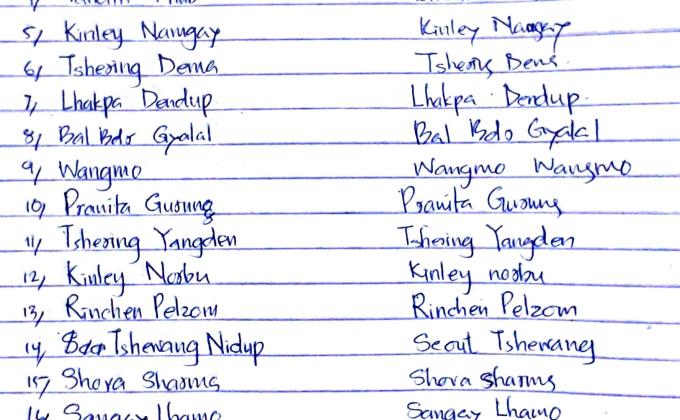 5/ Kinley Namgay Kinley Namgay
6/ Tshering Dema Tshering Dema
7/ Lhakpa Dendup Lhakpa Dendup
8/ Bal Bdo Gyalal Bal Bdo Gyalal
9/ Wangmo Wangmo Wangmo
10/ Pranita Gurung Pranita Gurung
11/ Tshering Yangden Tshering Yangden
12/ Kinley Norbu Kinley norbu
13/ Rinchen Pelzom Rinchen Pelzom
14/ Tshewang Nidup Tshewang
15/ Shova Sharma Shova Sharma
16/ Sangay Lhamo Sangay Lhamo